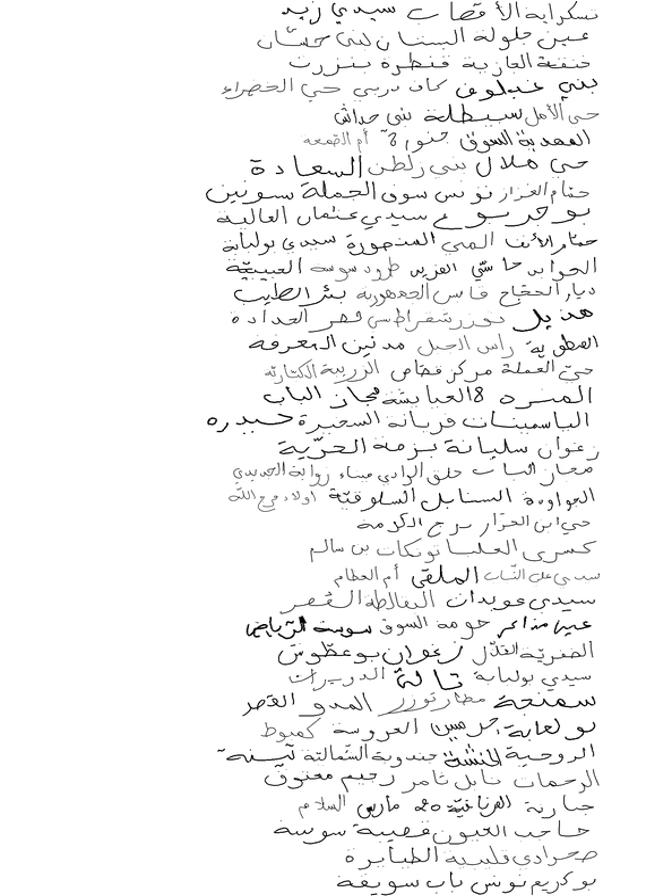 تسكراية الأقصاب سيدي زيد
عين جلولة البستان لبني حسان
خنقة الجازية قنطرة بنزرت
بني غيلوف كاف دربي حي الخضراء
حي الأمل سبيطلة بني حداش
المهدية السوق جنورة 8 أم القمعة
حي هلال بني زلطن السعادة
حمام الغزاز تونس سوق الجملة سونين
بوجربوع سيدي عثمان العالية
حمام الأنف المنى المنصورة سيدي بولبابة
الجوابر حاسي الفريد طرود سوسة العبيبيّة
ديار الحجاج فاس الجمهورية بئر الطيب
هذيل تجزر شقراطس قصر الحدادة
العطوية راس الجبل مدنين المعرفة
حيّ العملة مركز قصاص الزريبة الكثارنة
المنزه 8 العيايشة مجاز الباب
الياسمينات فريانة السخيرة حيدره
زغوان سليانة بزمة الحرّية
مجاز الباب حلق الوادي ميناء زواية الجديدي
الجواودة السنابل السلوقيّة أولاد فرج الله
حي ابن الجزار برج الكرمة
كسرى العليا توتكات بن سالم
سيدي علي الشباب الملقى أم العظام
سيدي عويدات النفالطة القصر
عين مذاكر حومة السوق سوسة الرياض
الصخريّة القلال زغوان بوعطوش
سيدي بولبابة تالة الدريرات
سمنجة مطار توزر المدو القصر
بولعابة حرمين العروسة كمبوط
الروحية الخنشة جندوبة الشمالية لبنة
الرحمات نابل ثامر رجيم معتوق
جبارنة الفرنانيّة 20 مارس السلام
حاجب العيون قصيبة سوسة
صحراوي قليبية الطبابرة
بوكريم تونس باب سويقة